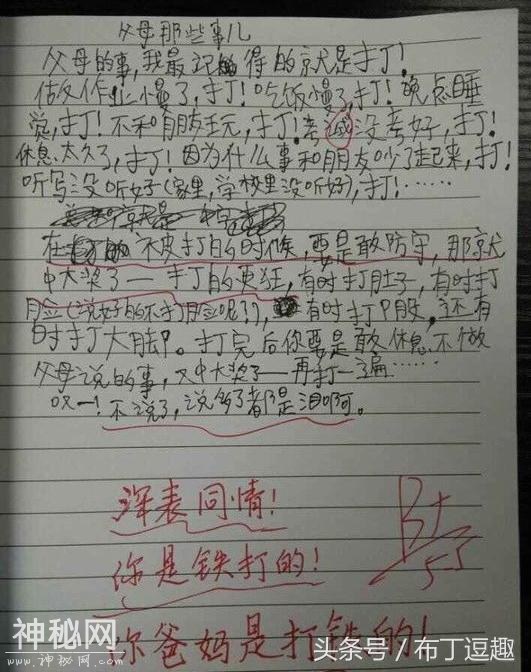 父母那些事儿
父母的事，我最记得的就是打！
做作业慢了，打！吃饭慢了，打！晚点睡
觉，打！不和朋友玩，打！考试没考好，打！
休息太久了，打！因为什么事和朋友吵了起来，打！
听写没听好（家里，学校里没听好），打！……
在 不皮打的时候，要是敢防守，那就
中大奖了——打的更狂，有时打肚子，有时打
脸（说好的不打脸呢？），有时打屁股，还有
时打大脚。打完后你要是敢休息不做
父母说的事，又中大奖了——再打一遍……
哎！不说了，说多了都是泪啊。
深表同情！
你是铁打的！
B+
55
你爸妈是打铁的！
神秘网
WWW.神秘网.COM
头条号／布丁逗趣